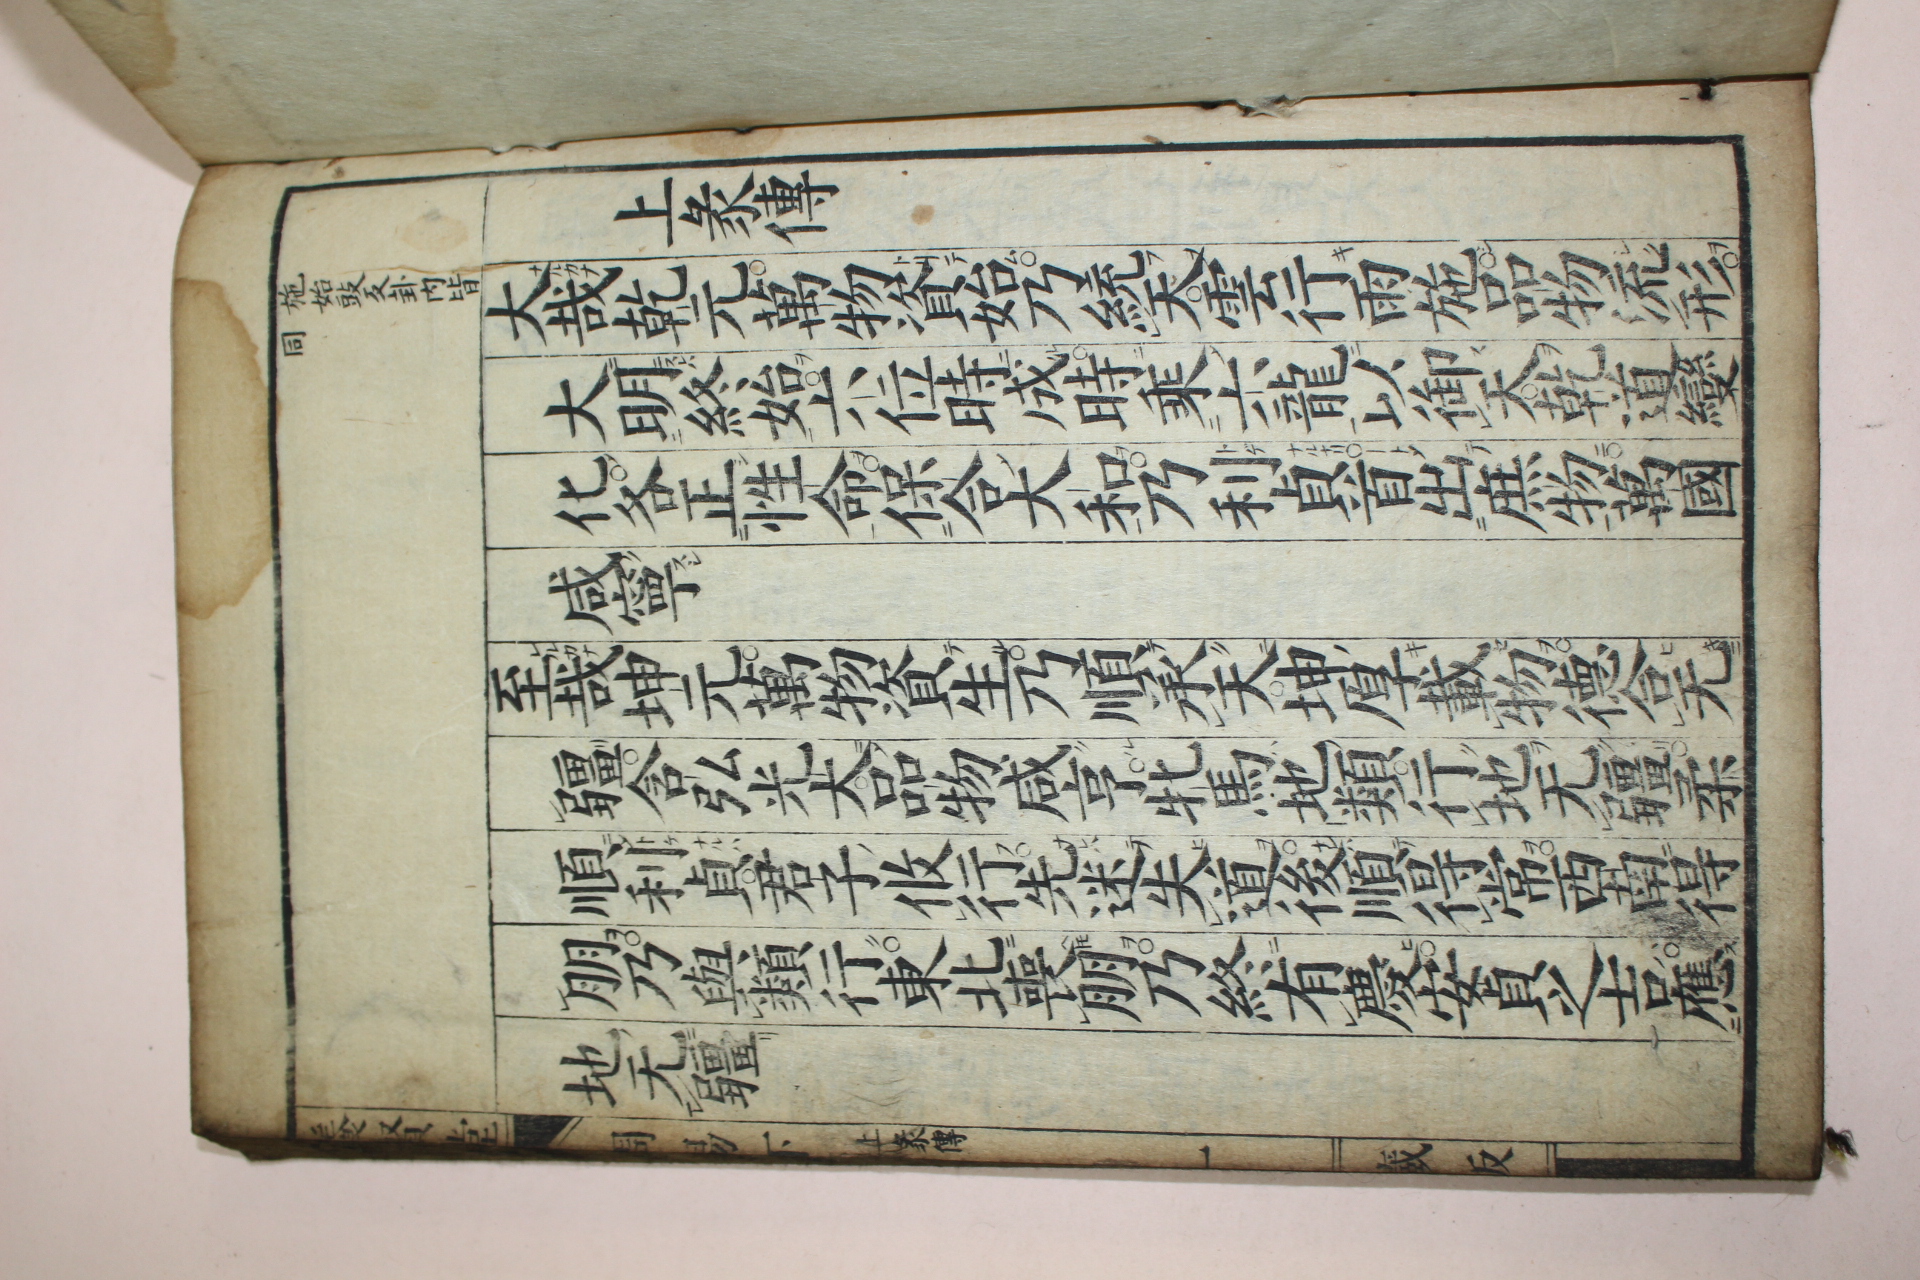 上彖傳
施始豉反卦内皆
同
大哉乾元萬物資始乃統天雲行雨施品物流形
大明終始六位時成時乘六龍以御天乾道變
化各正性命保合大和乃利貞首出庶物萬國
咸寧
至哉坤元萬物資生乃順承天坤厚載物德合无
疆含弘光大品物咸亨牝馬地類行地无疆柔
順利貞君子攸行先迷失道後順得常西南得
朋乃與類行東北喪朋乃終有慶安貞之吉應
地无疆
周易下 上彖傳 一